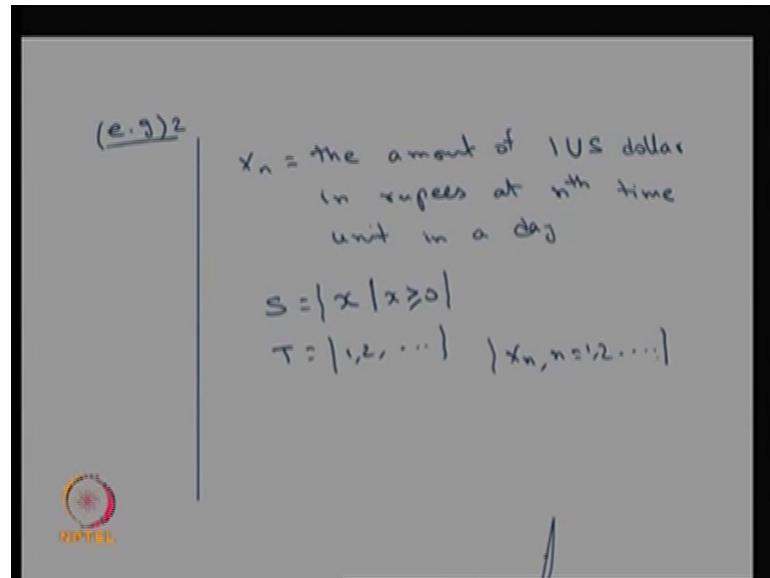 (e.g)2
Xn = the amount of 1 US dollar
in rupees at nth time
unit in a day
S = {x | x ≥ 0}
T = {1, 2, ...} {Xn, n = 1, 2 ....}
NPTEL